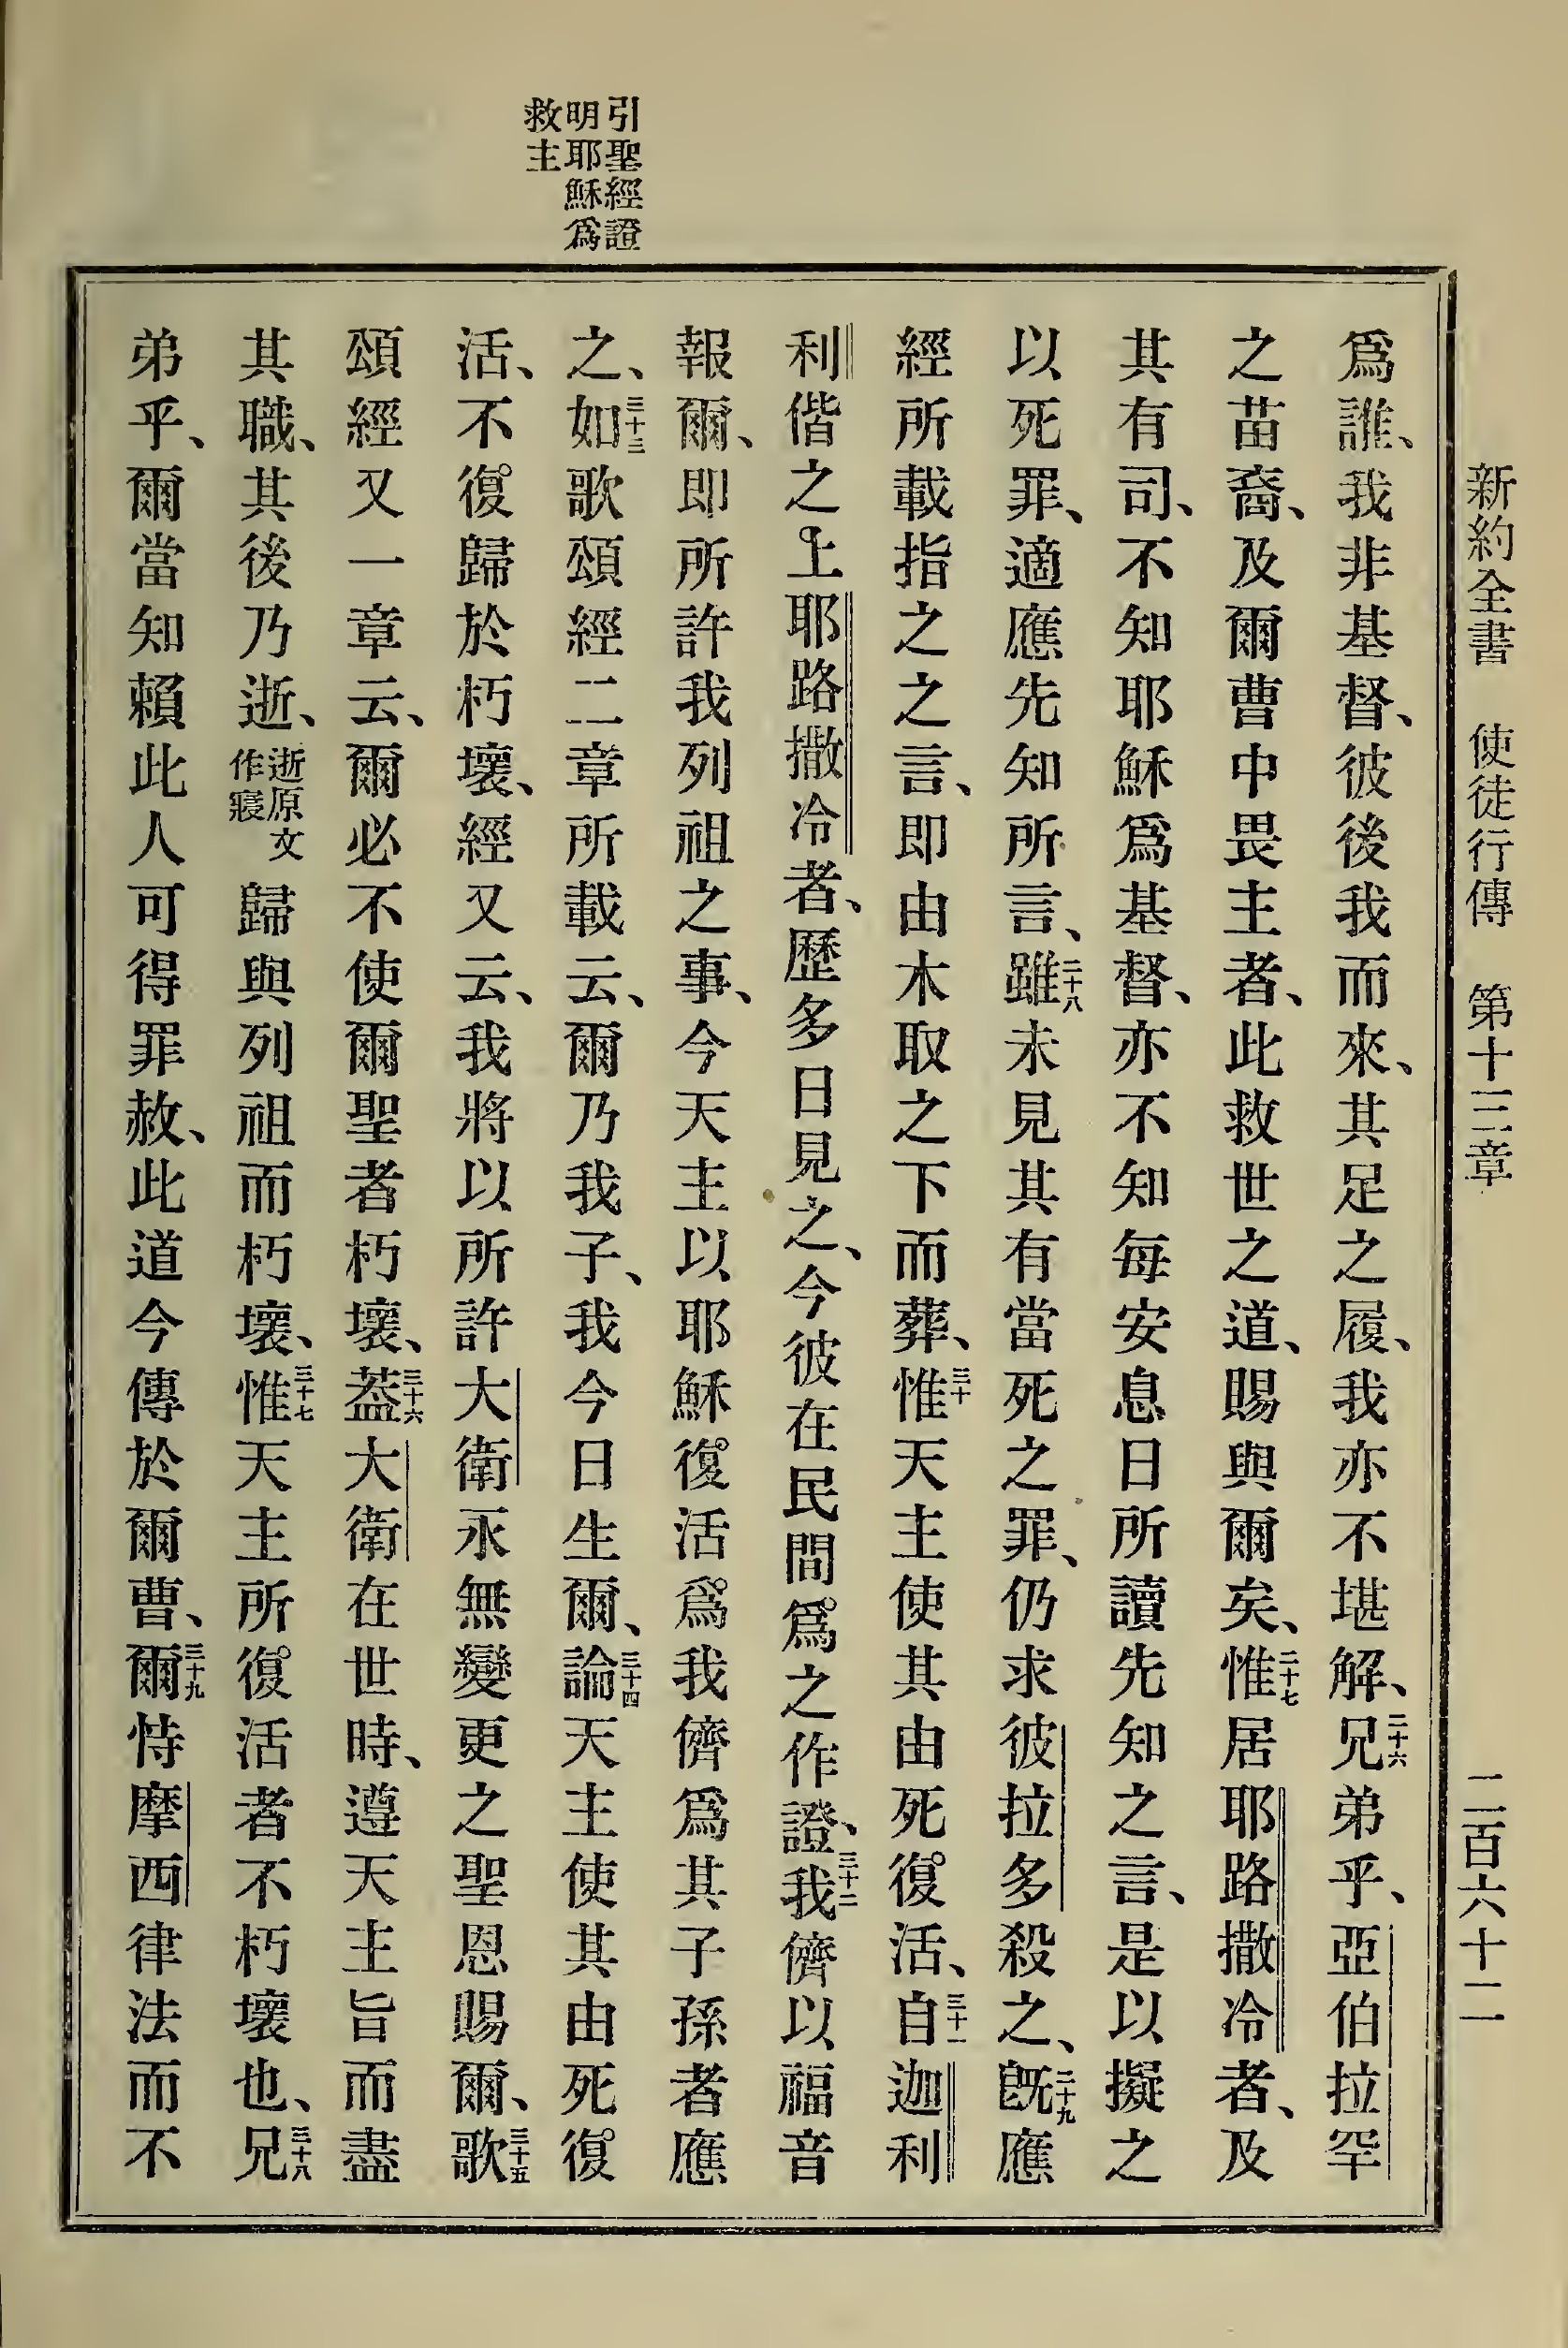 新約全書 使徒行傳 第十三章 二百六十二
引聖經證
明耶穌爲
救主
爲誰、我非基督、彼後我而來、其足之履、我亦不堪解、二十六兄弟乎、亞伯拉罕
之苗裔、及爾曹中畏主者、此救世之道、賜與爾矣、二十七惟居耶路撒冷者、及
其有司、不知耶穌爲基督、亦不知每安息日所讀先知之言、是以擬之
以死罪、適應先知所言、二十八雖未見其有當死之罪、仍求彼拉多殺之、二十九旣應
經所載指之之言、即由木取之下而葬、三十惟天主使其由死復活、三十一自迦利
利偕之上耶路撒冷者、歷多日見之、今彼在民間爲之作證、三十二我儕以福音
報爾、即所許我列祖之事、今天主以耶穌復活爲我儕爲其子孫者應
之、三十三如歌頌經二章所載云、爾乃我子、我今日生爾、三十四論天主使其由死復
活、不復歸於朽壞、經又云、我將以所許大衛永無變更之聖恩賜爾、三十五歌
頌經又一章云、爾必不使爾聖者朽壞、三十六葢大衛在世時、遵天主旨而盡
其職、其後乃逝、逝原文作寢歸與列祖而朽壞、三十七惟天主所復活者不朽壞也、三十八兄
弟乎、爾當知賴此人可得罪赦、此道今傳於爾曹、三十九爾恃摩西律法而不